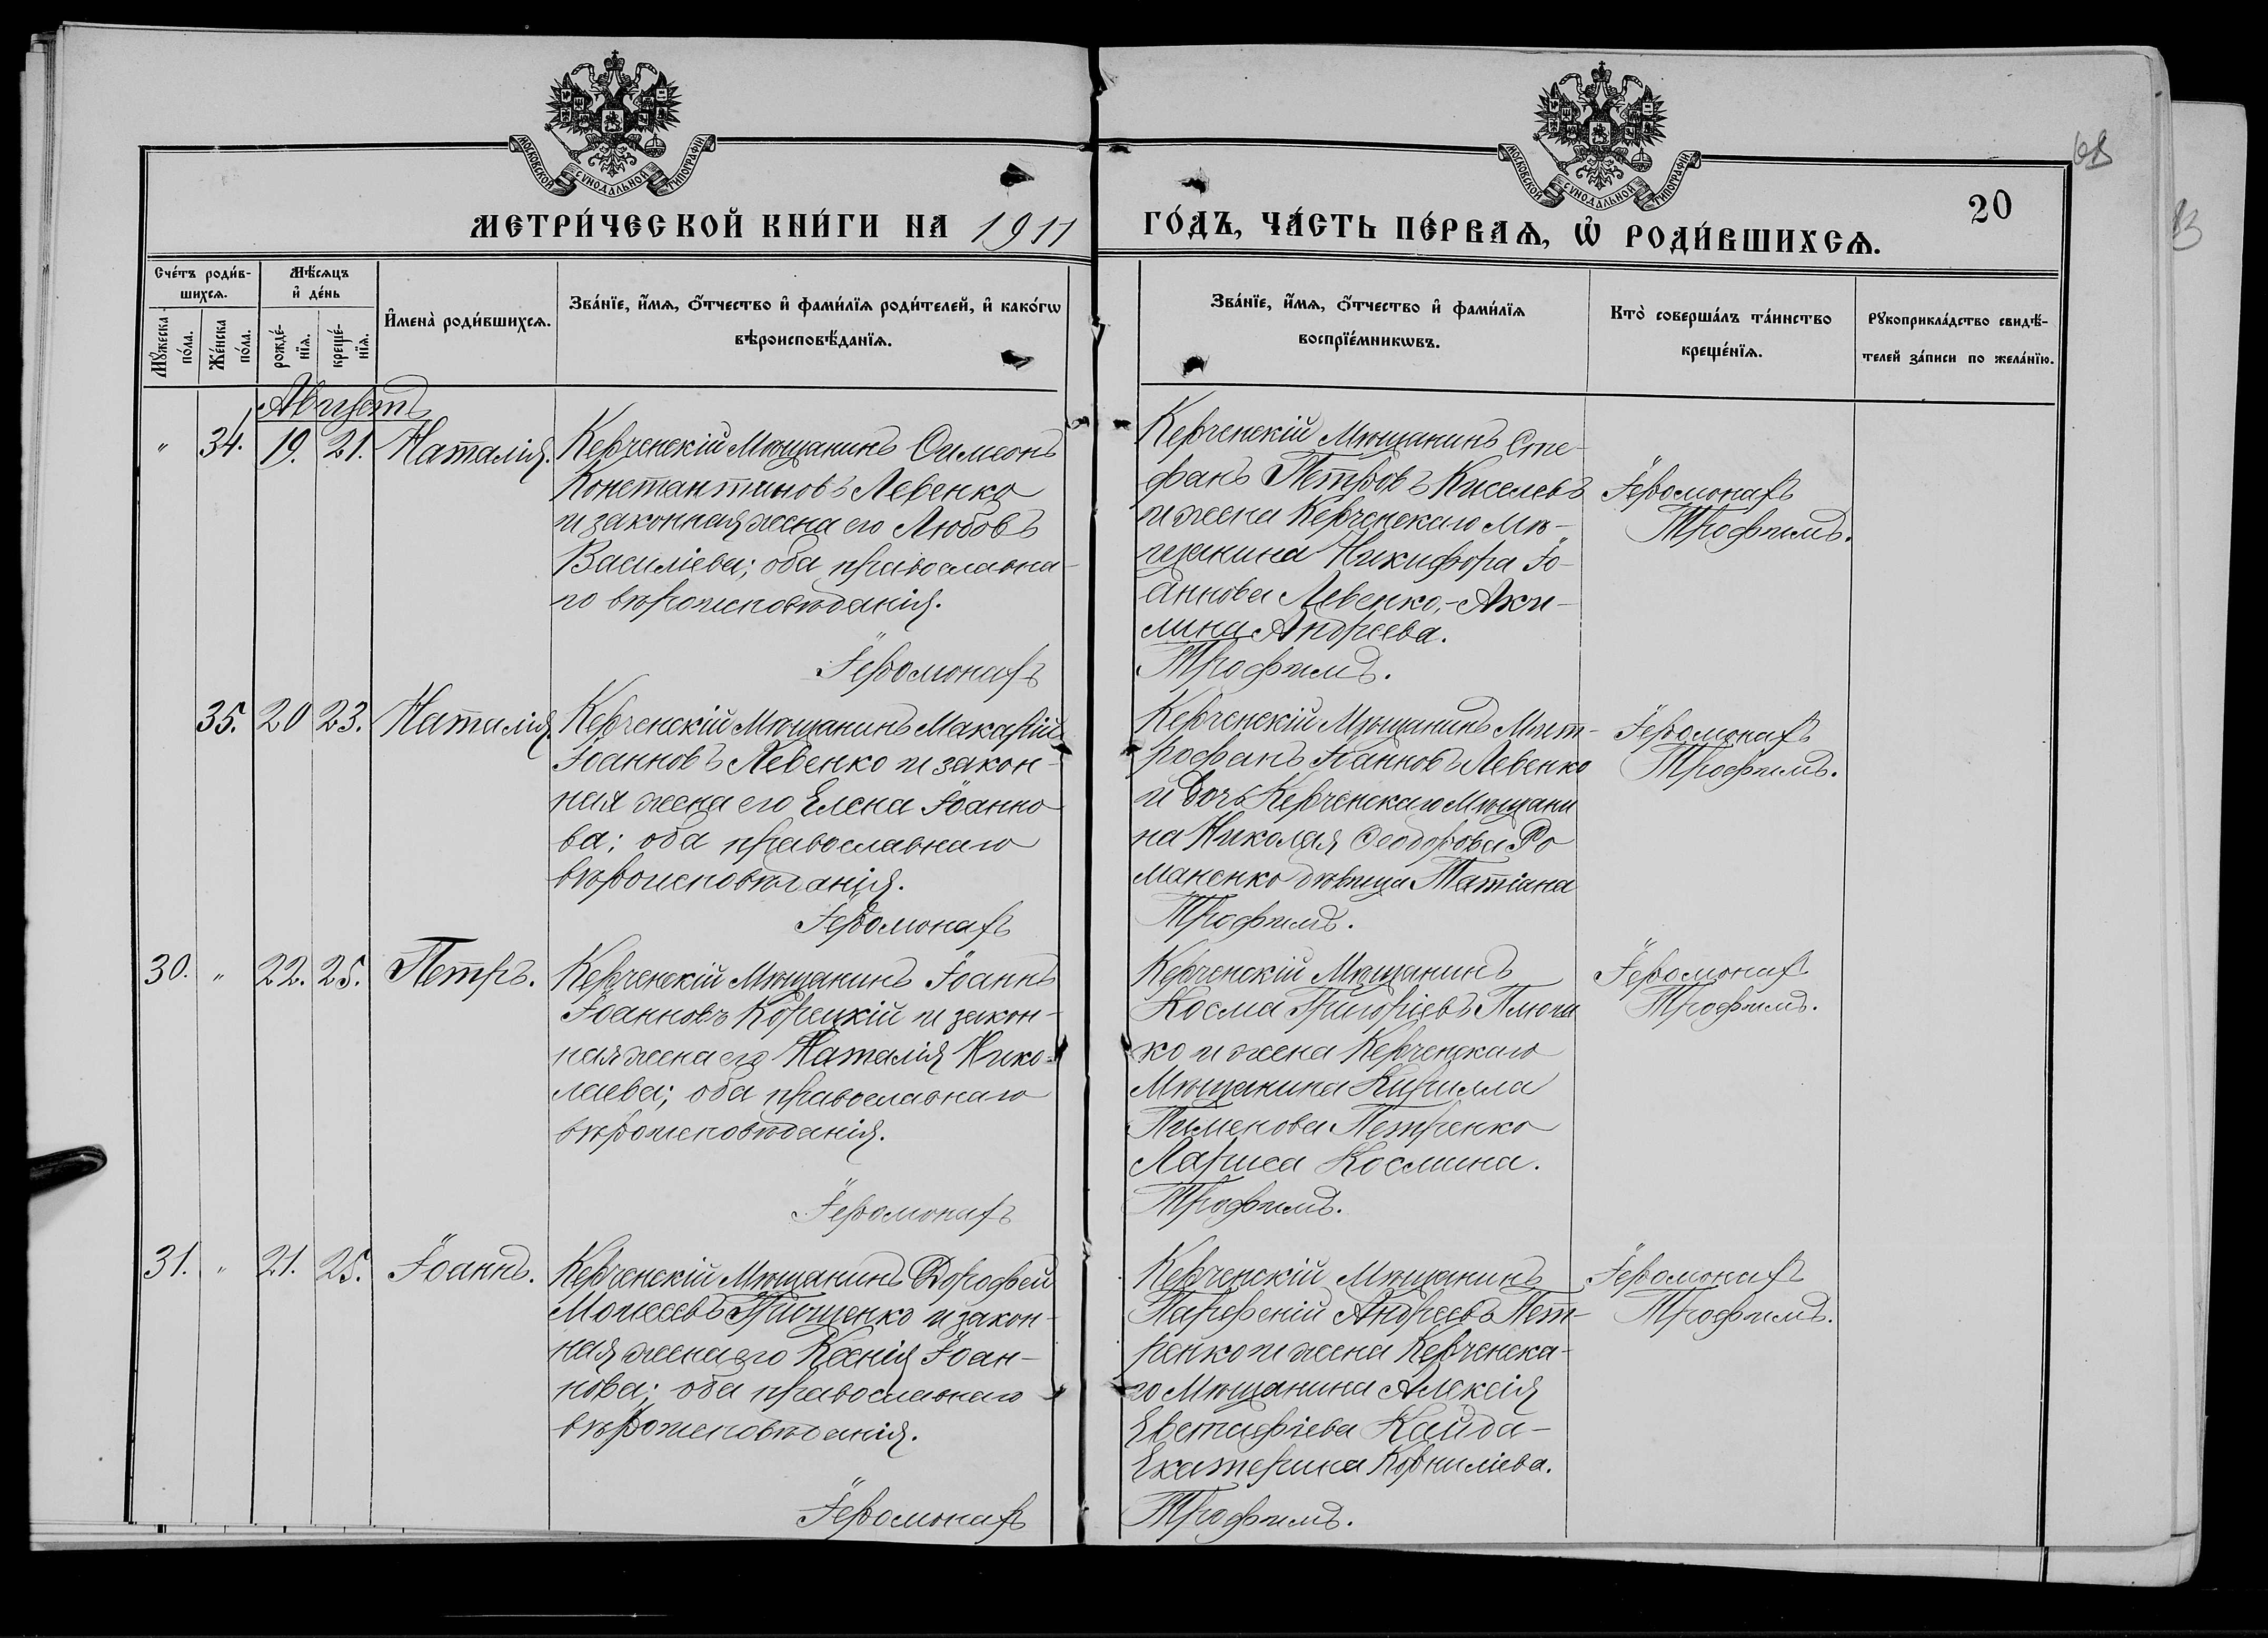 МОСКОВСКОЙ СѴНОДАЛЬНОЙ ТИПОГРАФІИ
МОСКОВСКОЙ СѴНОДАЛЬНОЙ ТИПОГРАФІИ
20
МЕТРИ́ЧЕСКОЙ КНИ́ГИ НА 1911
ГО́ДЪ, ЧА́СТЬ ПЕ́РВАѦ, Ѡ҆ РОДИ́ВШИХСѦ.
Сче́тъ роди́в-
шихсѧ.
Мꙋ́жеска
по́ла.
Же́нска
по́ла.
Мѣ́сѧцъ
и҆ де́нь
рожде́-
нїѧ.
креще́-
нїѧ.
И҆мена̀ роди́вшихсѧ.
Зва́нїе, и҆́мѧ, ѻ҆́тчество и҆ фами́лїѧ роди́телей, и҆ како́гѡ
вѣроисповѣ́данїѧ.
Зва́нїе, и҆́мѧ, ѻ҆́тчество и҆ фами́лїѧ
воспрїе́мникѡвъ.
Кто̀ соверша́лъ та́инство
креще́нїѧ.
Рꙋкоприкла́дство свидѣ́-
телей за́писи по жела́нїю.
Августъ
" 34. 19. 21. Наталія.
Керченскій Мѣщанинъ Симеонъ
Константиновъ Левенко
и законная жена его Любовь
Василіева; оба православна-
го вѣроисповѣданія.
Іеромонахъ
Керченскій Мѣщанинъ Сте-
фанъ Петровъ Киселевъ
и жена Керченскаго Мѣ-
щанина Никифора Іо-
аннова Левенко,- Аки-
лина Андреева.
Трофимъ.
Іеромонахъ
Трофимъ.
35. 20 23. Наталія
Керченскій Мѣщанинъ Макарій
Іоанновъ Левенко и закон-
ная жена его Елена Іоанно-
ва; оба православнаго
вѣроисповѣданія.
Іеромонахъ
Керченскій Мѣщанинъ Мит-
рофанъ Іоанновъ Левенко
и дочь Керченскаго Мѣщани
на Николая Феодорова Ро
маненко дѣвица Татіана
Трофимъ.
Іеромонахъ
Трофимъ.
30. " 22. 25. Петръ.
Керченскій Мѣщанинъ Іоаннъ
Іоанновъ Корецкій и закон-
ная жена его Наталія Нико-
лаева; оба православнаго
вѣроисповѣданія.
Іеромонахъ
Керченскій Мѣщанинъ
Косма Григоріевъ
ко и жена Керченскаго
Мѣщанина Кирилла
Пименова Петренко
Лариса Космина.
Трофимъ.
Іеромонахъ
Трофимъ.
31. " 21. 25. Іоаннъ.
Керченскій Мѣщанинъ Дорофей
Моисеевъ Грищенко и закон-
ная жена его Ксенія Іоан-
нова; оба православнаго
вѣроисповѣданія.
Іеромонахъ
Керченскій Мѣщанинъ
Парфеній Андреевъ Пет-
ренко и жена Керченска-
го Мѣщанина Алексія
Евстафіева Кайда-
Екатерина Корниліева.
Трофимъ.
Іеромонахъ
Трофимъ.